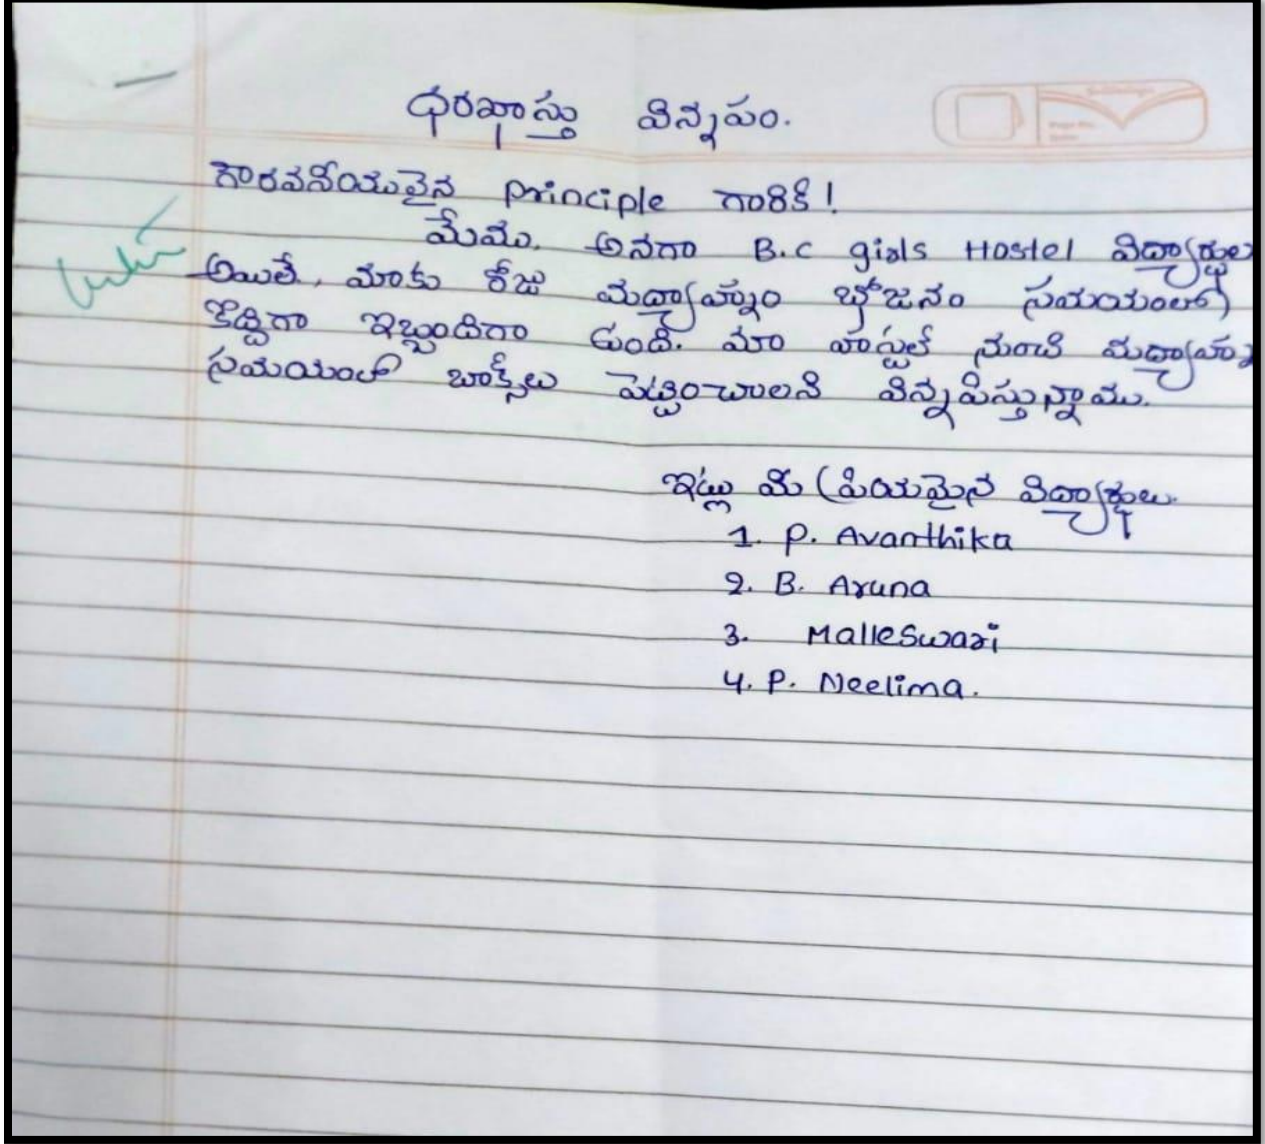 ధరఖాస్తు విన్నపం.
గౌరవనీయువైన principle గారికి!
మేము. అనగా B.C girls Hostel విద్యార్థుల
అయితే, మాకు రోజు మద్యాహ్నం భోజనం సమయంలో
కొద్దిగా ఇబ్బందిగా ఉంది. మా హాస్టల్ నుంచి మద్యాహ్న
సమయంలో బాక్స్‌లు పెట్టించాలని విన్నపిస్తున్నాము.
ఇట్లు మీ ప్రియమైన విద్యార్థులు.
1. P. Avanthika
2. B. Aruna
3. Malleswari
4. P. Neelima.